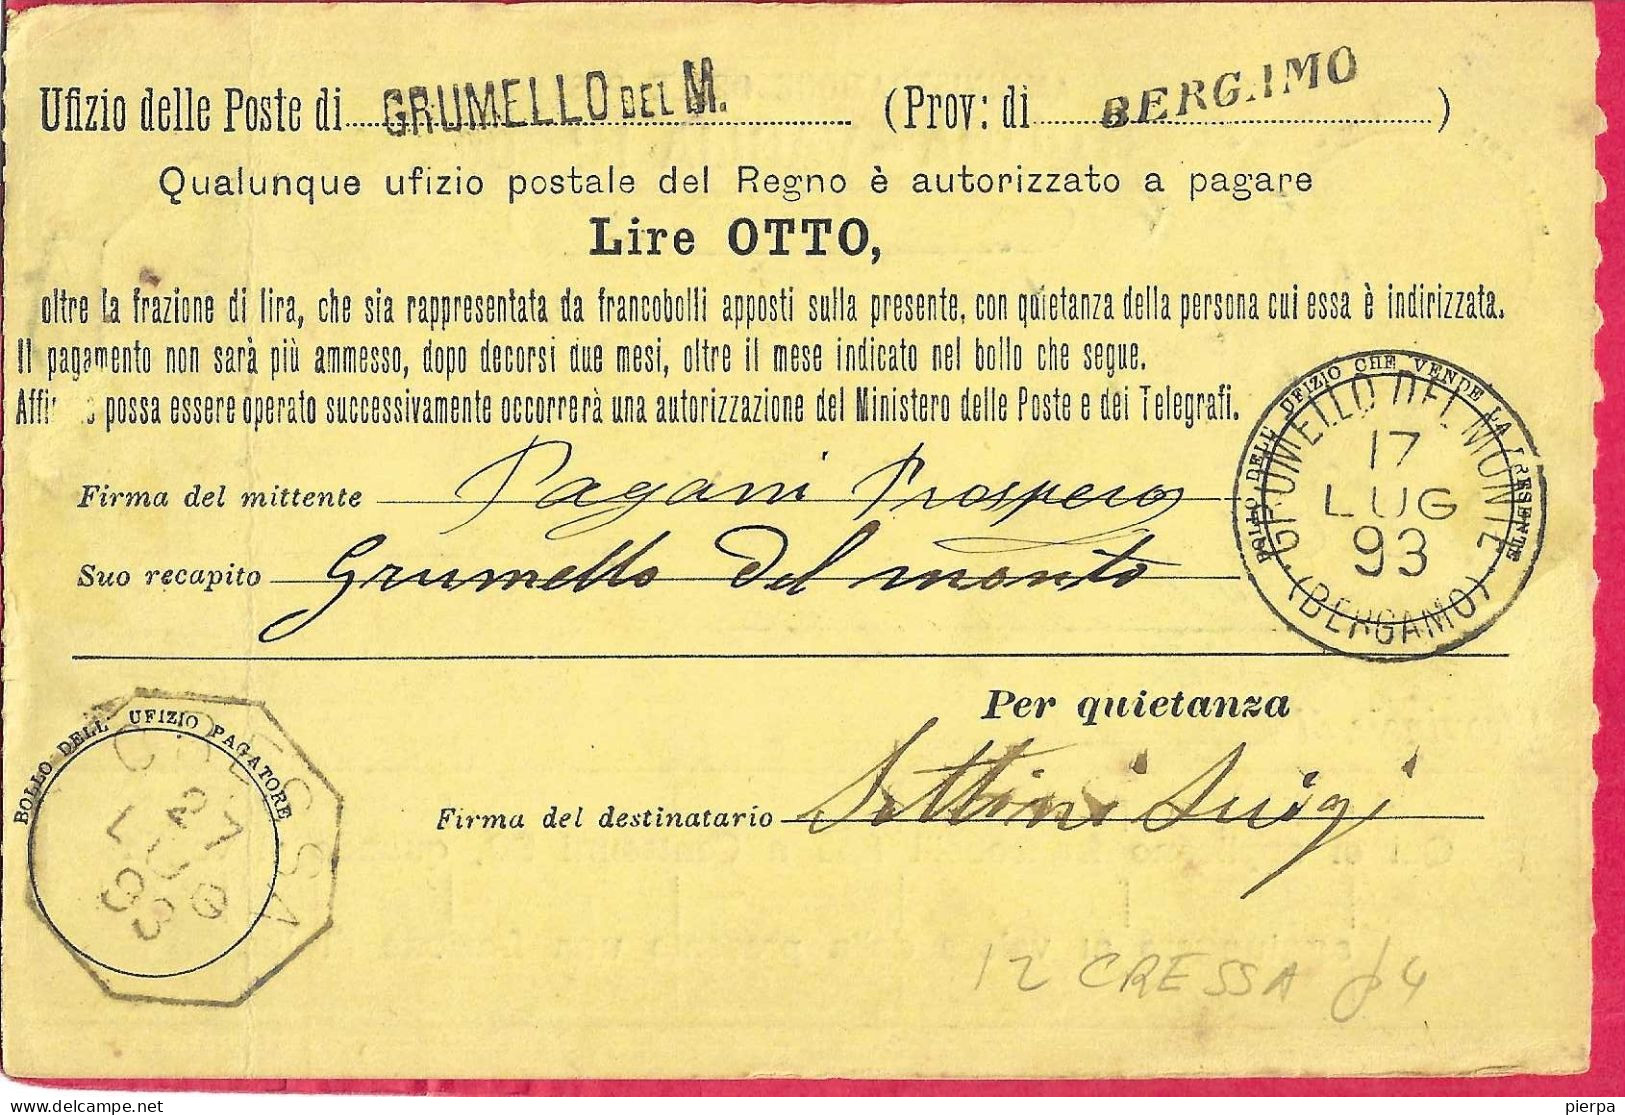 Ufizio delle Poste di GRUMELLO DEL M. (Prov: di BERGAMO)
Qualunque ufizio postale del Regno è autorizzato a pagare
Lire OTTO,
oltre la frazione di lira, che sia rappresentata da francobolli apposti sulla presente, con quietanza della persona cui essa è indirizzata.
Il pagamento non sarà più ammesso, dopo decorsi due mesi, oltre il mese indicato nel bollo che segue.
possa essere operato successivamente occorrerà una autorizzazione del Ministero delle Poste e dei Telegrafi.
BOLLO DELL' UFIZIO CHE VENDE LA PRESENTE
GRUMELLO DEL MONTE
17
LUG
93
(BERGAMO)
Firma del mittente Pagani Prospero
Suo recapito Grumello del monte
Per quietanza
BOLLO DELL' UFIZIO PAGATORE
CRESSA
27
LUG
93
Firma del destinatario Settini Luigi
12 CRESSA 4
pierpa